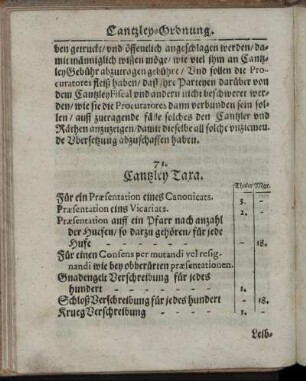 Cantzley-Ordnung.
ben getruckt/ und öffentlich angeschlagen werden/ da-
mit männiglich wissen möge/ wie viel ihm an Cantz-
ley Gebühr abzutragen gebühre/ Und sollen die Pro-
curatores fleiß haben/ daß ihre Parteyen darüber von
dem Cantzley Fiscal und andern nicht beschweret wer-
den/ wie sie die Procuratores dann verbunden sein sol-
len/ auff zutragende fälle solches den Cantzler und
Räthen anzuzeigen/ damit dieselbe all solche unziemen-
de Ubersetzung abzuschaffen haben.
71.
Cantzley Taxa.
Thaler Mgr.
Für ein Præsentation eines Canonicats. 3. -
Præsentation eins Vicariats. 2. -
Præsentation auff ein Pfarr nach anzahl
der Huefen/ so darzu gehören/ für jede
Hufe - - - - - 18.
Für einen Consens per mutandi vel resig-
nandi wie bey obberürten præsentationen.
Gnadengelt Verschreibung für jedes
hundert - - - - 1. -
Schloß Verschreibung für jedes hundert - 18.
Krueg Verschreibung - - - 1. -
Leib-